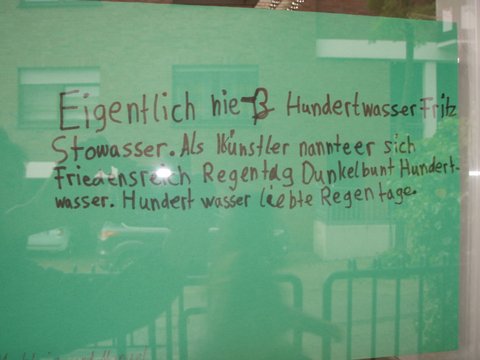 Eigentlich hieß Hundertwasser Fritz
Stowasser. Als Künstler nannte er sich
Friedensreich Regentag Dunkelbunt Hundert-
wasser. Hundert wasser liebte Regentage.